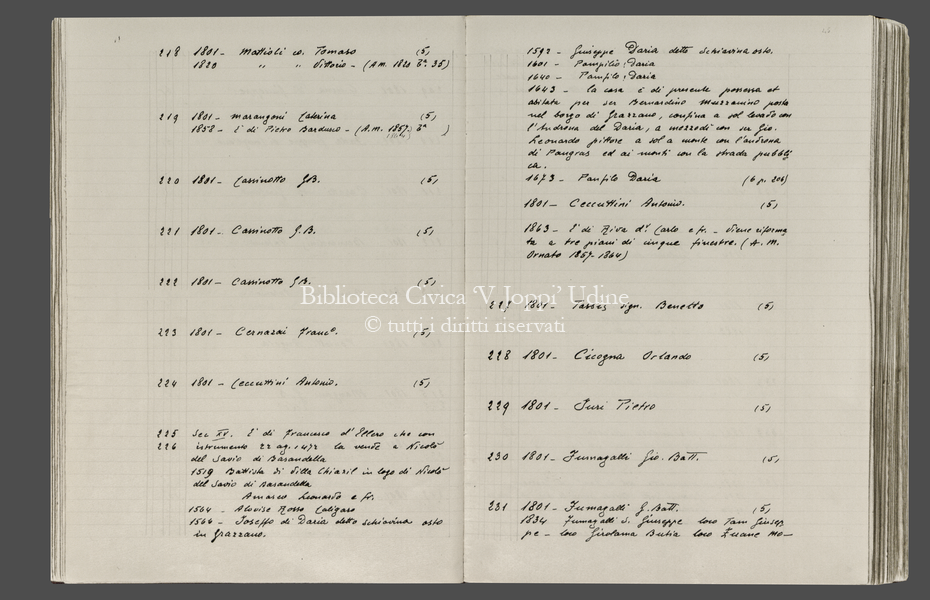 218 1801 – Mattioli co. Tomaso (5)
1820 " " Vittorio – (A.M. 1820 Tª. 35)
219 1801 – Marangoni Caterina (5)
1858 – È di Pietro Bardusco – (A.M. 1857. Tª )
220 1801 – Cassinotto G.B. (5)
221 1801 – Cassinotto G.B. (5)
222 1801 – Cassinotto G.B. (5)
223 1801 – Cernazai Franc°. (5)
224 1801 – Ceccuttini Antonio. (5)
225 Sec XV. È di Francesco d'Ellero che con
226 istrumento 22 ag. 1472 la vende a Nicolò
del Savio di Basandella
1519 Battista di Villa Chiazil in logo di Nicolò
del Savio di Basandella
Amaseo Leonardo e fr.
1564 – Alovise Rosso Caligaro
1564 – Joseffo di Daria detto schiavina osto
in Grazzano.
1592 – Giuseppe Daria detto schiavina osto.
1601 – Pampilio Daria
1640 – Panfilo Daria
1643 – la casa è di presente possessa et
abitata per ser Bernardino Muzzanino posta
nel borgo di Grazzano, confina a sol levado con
l'androna del Daria, a mezzodì con ser Gio.
Leonardo pittore a sol a monte con l'androna
di Pangras ed ai monti con la strada pubbli
ca.
1673 – Panfilo Daria (6 p. 206)
1801 – Ceccuttini Antonio. (5)
1863 – È di Riva d'. Carlo e fr. – viene riforma
ta a tre piani di cinque finestre. (A.M.
Ornato 1857-1864)
227 1801 – Tassis sign. Benetto (5)
228 1801 – Cicogna Orlando (5)
229 1801 – Juri Pietro (5)
230 1801 – Fumagalli Gio. Batt. (5)
231 1801 – Fumagalli G. Batt. (5)
1834 Fumagalli s. Giuseppe loco Fam Giusep
pe – loco Girolama Busia loco Zuane Mo–
Biblioteca Civica 'V. Joppi' Udine
© tutti i diritti riservati